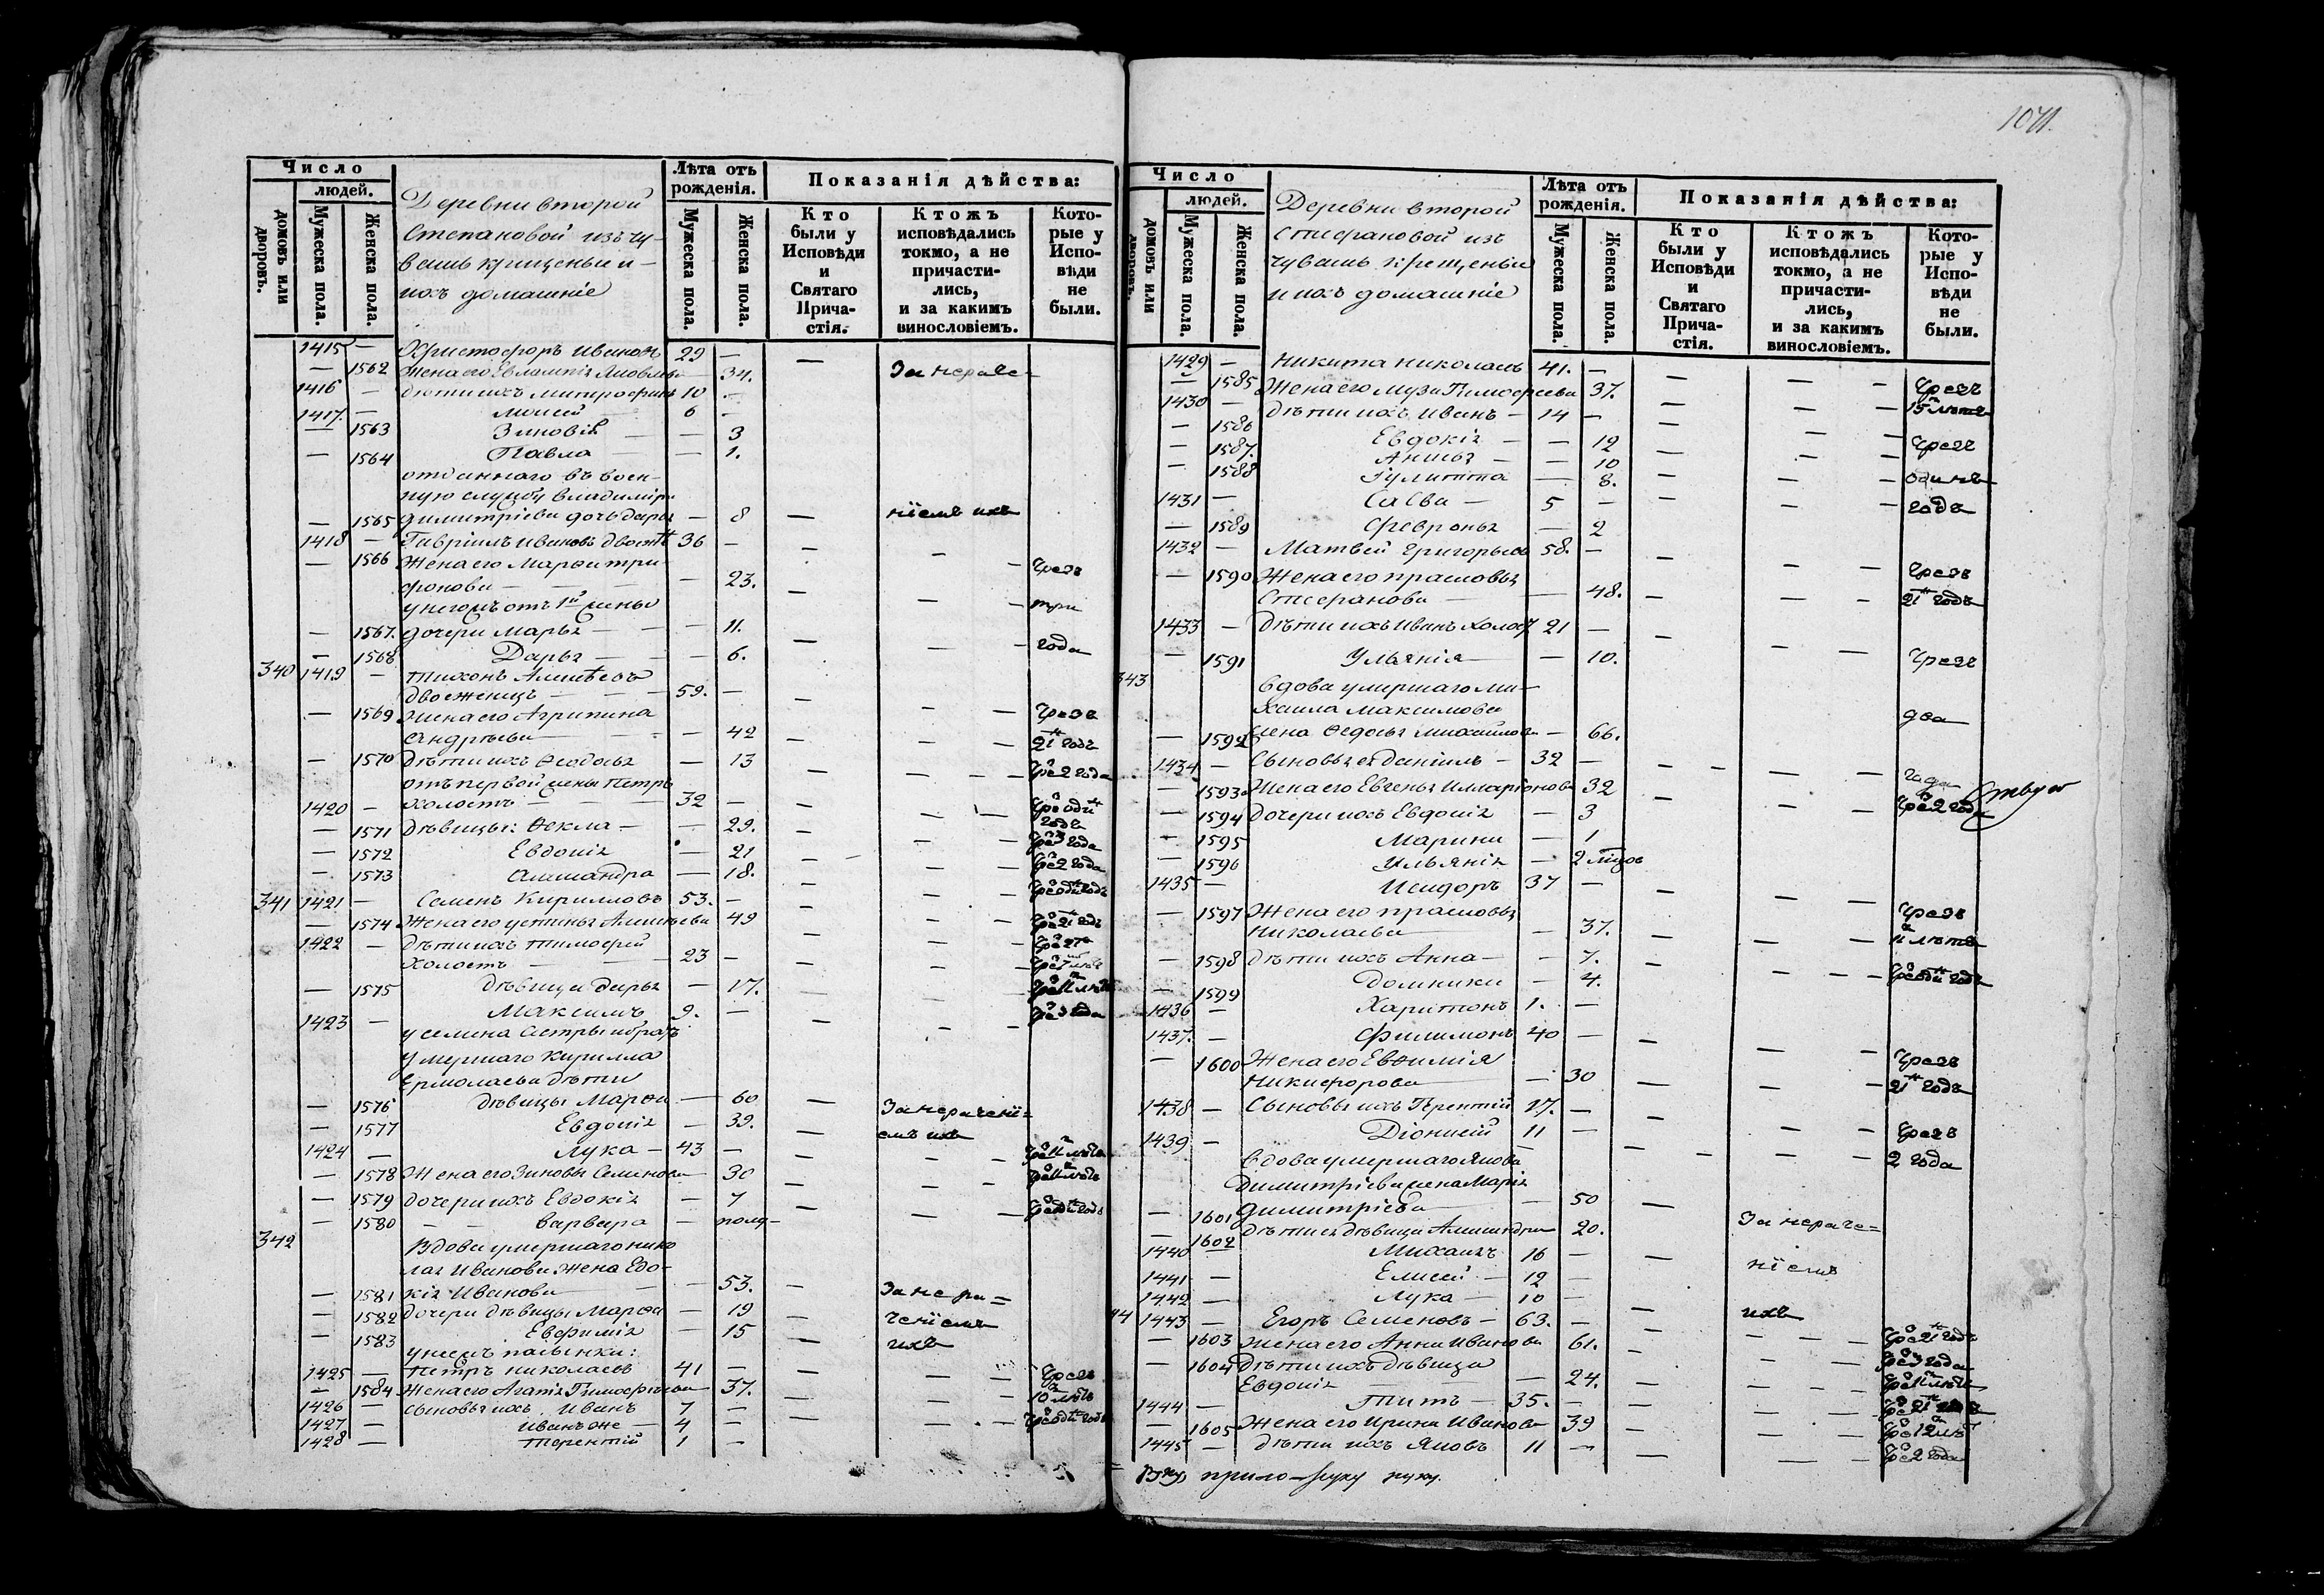 1041.
Число
людей.
домовъ или дворовъ.
Мужеска пола.
Женска пола.
Деревни второй
Степановой изъ чу-
вашъ крещеныи и
ихъ домашніе
Лѣта отъ рожденія.
Мужеска пола.
Женска пола.
Показанія дѣйства:
Кто были у Исповѣди и Святаго Прича-стія.
Ктожъ исповѣдались токмо, а не причасти-лись, и за какимъ винословіемъ.
Кото-рые у Испо-вѣди не были.
1415 — Христофоръ Ивановъ 29 — — За нераче-
— 1562 Жена его Евлампія Яковлева — 34.
1416 — дѣти ихъ 10 —
1417. — Моисей 6 —
— 1563 Зиновія — — 3
— 1564 Павла — — 1.
отданнаго въ воен-
ную службу Владиміра
— 1565 Димитріева дочь Дарья — 8 — ніемъ ихъ
1418 — Гавріилъ Ивановъ 36 —
— 1566 Жена его Марѳа Три-
фонова — — 23. Чрезъ
у него отъ 1й жены три
— 1567. дочери Марья — — 11.
— 1568 Дарья — — 6. года
340 1419 — Тихонъ Алексѣевъ
двоеженецъ — 59. —
— 1569 жена его Агрипина Чрезъ
Андреева — — 42 21 годъ
— 1570 дѣти ихъ Ѳеодосья — 13 2 года
отъ первой жены Петръ
1420 — холостъ — 32 —
годъ
— 1571 дѣвицы: Ѳекла — — 29. 3 года
— 1572 Евдокія — 21 2 года
— 1573 Александра — 18. годъ
341 1421 — Семенъ Кирилловъ 53. —
— 1574 Жена его Устинья Алексѣева 49
1422 — дѣти ихъ Тимофей
холостъ — 23 —
— 1575 дѣвица Дарья — 17.
1423 — Максимъ 9. —
у Семена сестры и братъ
умершаго Кирилла
Ермолаева дѣти
— 1576 дѣвицы Марѳа — 60 За нерачені=
— 1577 Евдокія — 39. емъ ихъ
1424 — Лука — 43 —
— 1578 Жена его Зиновья Семенова — 30
— 1579 дочери ихъ Евдокія — 7
— 1580 — Варвара — полг-
342 Вдова умершаго Нико
лая Иванова жена Евдо-
— 1581 кія Иванова — — 53. За нера=
— 1582 дочери дѣвицы Марѳа — 19 ченіемъ
— 1583 Евфимія — 15 ихъ
у нея пасынки:
1425 — Петръ Николаевъ 41 — Чрезъ
— 1584 Жена его Агапія Тимофеева 37. 10 лѣтъ
1426 — сыновья ихъ Иванъ 7 —
1427 — Иванъ же — 4 —
1428 — Терентій 1 —
Число
людей.
домовъ или дворовъ.
Мужеска пола.
Женска пола.
Деревни второй
Стефановой изъ
чувашъ крещеныи
и ихъ домашніе
Лѣта отъ рожденія.
Мужеска пола.
Женска пола.
Показанія дѣйства:
Кто были у Исповѣди и Святаго Прича-стія.
Ктожъ исповѣдались токмо, а не причасти-лись, и за какимъ винословіемъ.
Кото-рые у Испо-вѣди не были.
1429 — Никита Николаевъ 41. — Чрезъ
— 1585 Жена его Тимофеева 37. 15 лѣтъ
1430 — дѣти ихъ Иванъ — 14 —
— 1586 Евдокія — — 12 Чрезъ
— 1587. Анисья — — 10
— 1588 Іулитта — 8. одинъ
1431 — Савва — 5 — годъ
— 1589 Февронья — 2
1432 — Матвей Григорьевъ 58. —
— 1590 Жена его Прасковья Чрезъ
Стефанова — — 48. 21 годъ
1433 — дѣти ихъ Иванъ холост 21 —
— 1591 Ульянія — — 10. Чрезъ
343 вдова умершаго Ми-
хаила Максимова два
— 1592 жена Ѳедосья Михайлова — 66.
1434 — сыновья ея Даніилъ — 32 — года
— 1593. Жена его Евгенья Илларіонова 32 2 года
— 1594 дочери ихъ Евдокія — 3
— 1595 Марина — 1
— 1596 Ульянія — 2 мѣсяц
1435 — Исидоръ 37 —
— 1597 Жена его Прасковья Чрезъ
Николаева — — 37. 11 лѣтъ
— 1598 дѣти ихъ Анна — — 7.
— 1599 Домники — 4.
1436 — Харитонъ 1. —
1437. — Филимонъ 40 —
— 1600 Жена его Евѳимія Чрезъ
Никифорова — — 30 21 годъ
1438 — сыновья ихъ Терентій 17. —
1439 — Діонисій 11 — Чрезъ
вдова умершаго Якова 2 года
Димитріева жена Марія
— 1601 Димитріева — — 50
— 1602 дѣти ея дѣвица Александра — 20. За нераче=
1440 Михаилъ 16 —
1441 — Елисей — 12 — ніемъ
1442 — Лука — 10 —
44 1443 — Егоръ Семеновъ — 63. — ихъ
— 1603 жена его Анна Иванова 61. 21 годъ
— 1604 дѣти ихъ дѣвица 3 года
Евдокія — 24.
1444 — Титъ — 35. —
— 1605 Жена его Ирина Иванова 39 12 лѣт
1445 — дѣти ихъ Яковъ 11 — 2 года